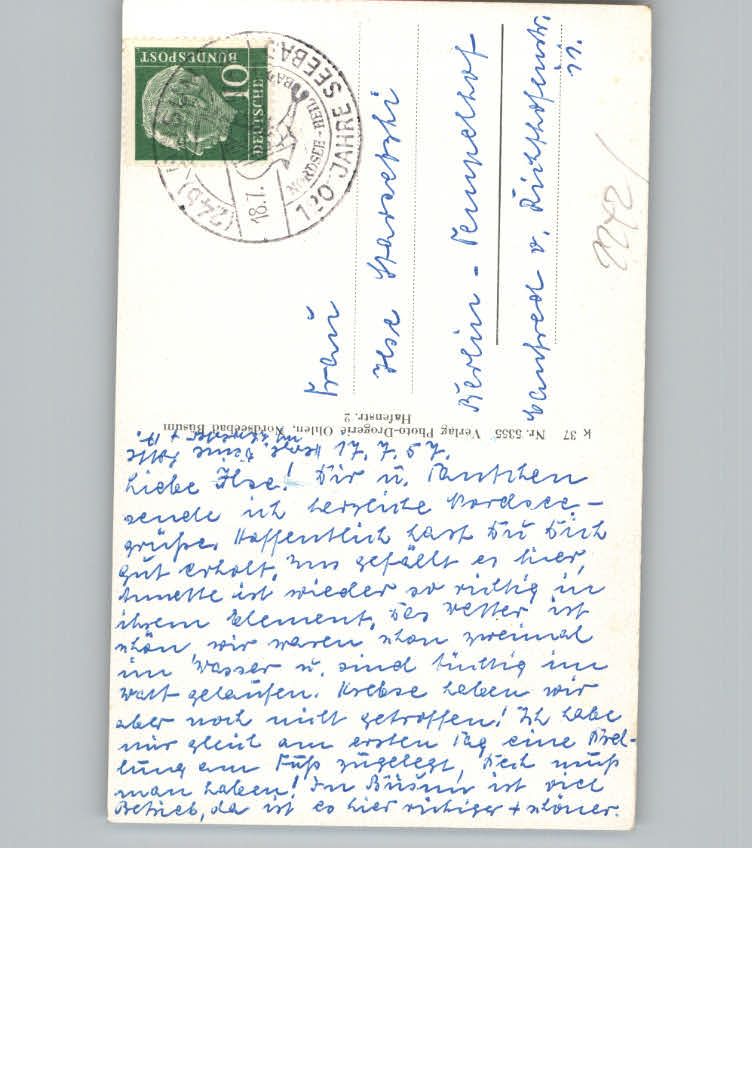 17. 7. 57.
Liebe Ilse! Dir u. Tantchen
sende ich herzliche Nordsee-
grüße. Hoffentlich hast Du Dich
gut erholt. Uns gefällt es hier,
Annette ist wieder so richtig in
ihrem Element. Das Wetter ist
schön, wir waren schon zweimal
im Wasser u. sind tüchtig im
Watt gelaufen. Krebse haben wir
aber noch nicht getroffen! Ich habe
mir gleich am ersten Tag eine
am Fuß zugelegt, muß
man haben! In Büsum ist viel
Betrieb, da ist es hier ruhiger + schöner.
Herzl. Deine
K 37 Nr. 5355 Verlag Photo-Drogerie Ohlen, Nordseebad Büsum
Hafenstr. 2
Frau
Ilse
Berlin - Tempelhof
Manfred v. Richthofenstr.
DEUTSCHE
BUNDESPOST
10
120 JAHRE SEEBAD
NORDSEE-HEILBAD
(24b)
18.7.